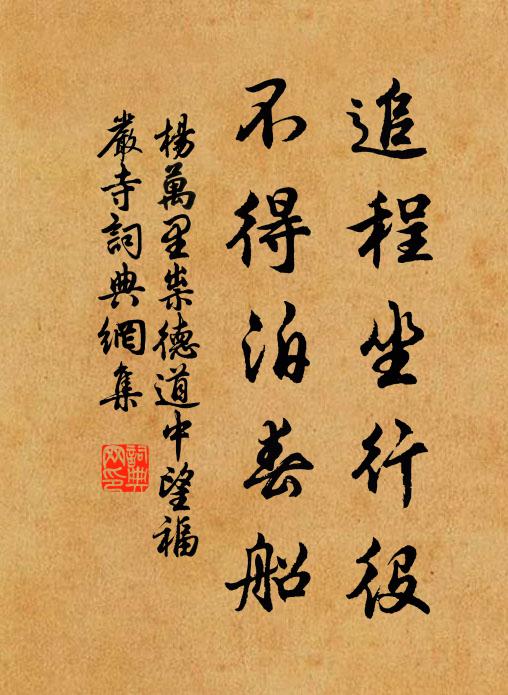 追程坐行役
不得泊春船
楊萬里崇德道中望福
嚴寺詞典網集
詞典
网印